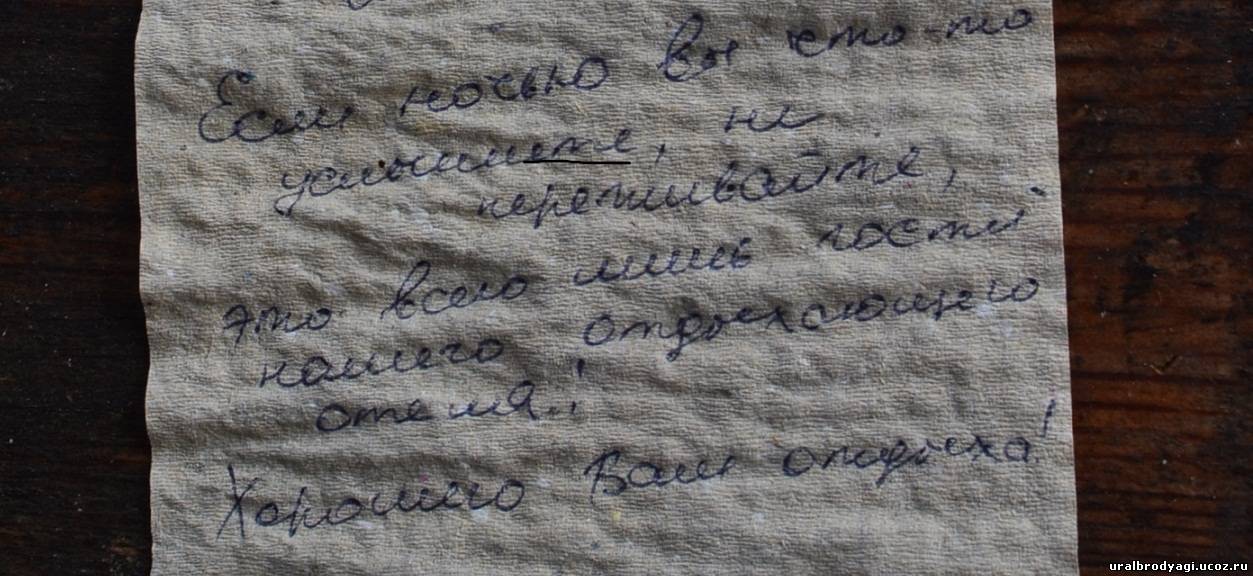 Если ночью вы что-то
услышите, не
переживайте,
это всего лишь гости
нашего отдыхающего
отеля!
Хорошего Вам отдыха!
uralbrodyagi.ucoz.ru